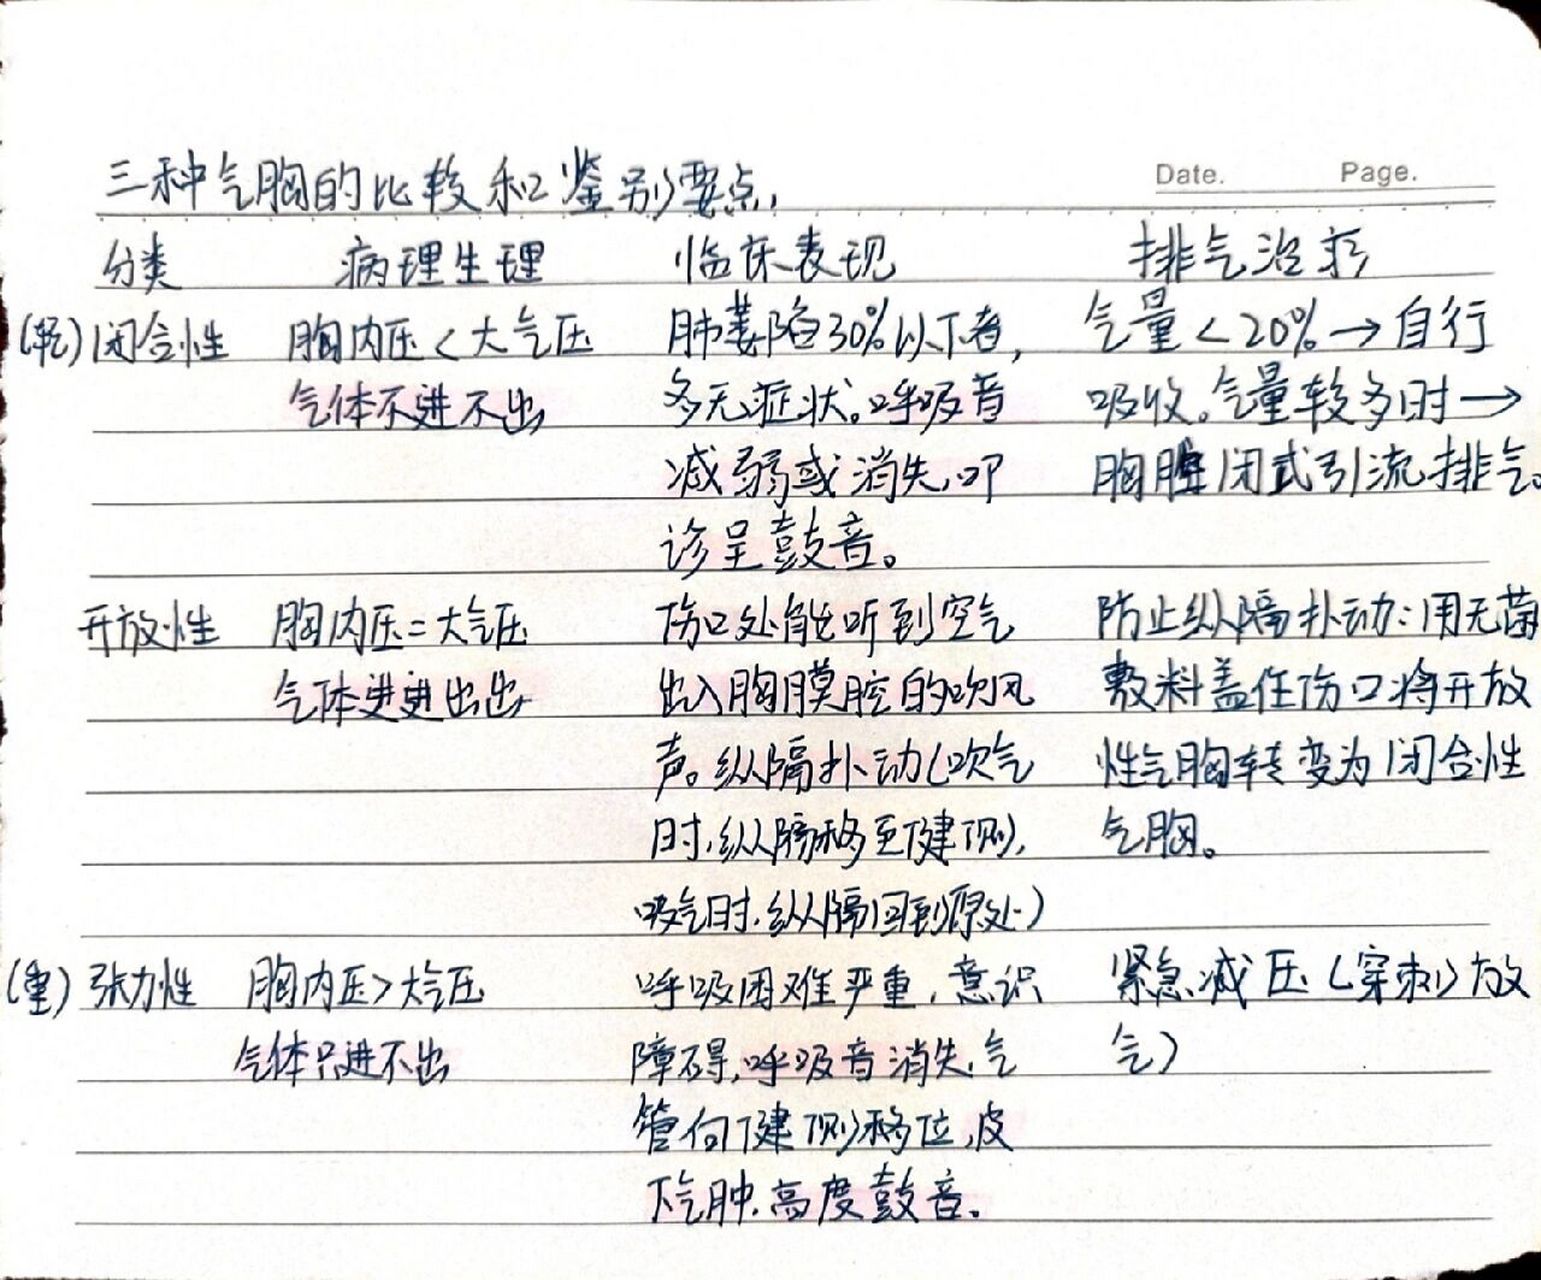 Date. Page.
三种气胸的比较和鉴别要点,
分类 病理生理 临床表现 排气治疗
(轻)闭合性 胸内压<大气压 肺萎陷30%以下者, 气量<20%→自行
气体不进不出 多无症状。呼吸音 吸收。气量较多时→
减弱或消失,叩 胸腔闭式引流排气。
诊呈鼓音。
开放性 胸内压=大气压 伤口处能听到空气 防止纵隔扑动:用无菌
气体进进出出 出入胸膜腔的吹风 敷料盖住伤口将开放
声。纵隔扑动(吹气 性气胸转变为闭合性
时,纵隔移至健侧, 气胸。
吸气时,纵隔回到原处)
(重)张力性 胸内压>大气压 呼吸困难严重,意识 紧急减压(穿刺放
气体只进不出 障碍,呼吸音消失,气 气)
管向健侧移位,皮
下气肿,高度鼓音。